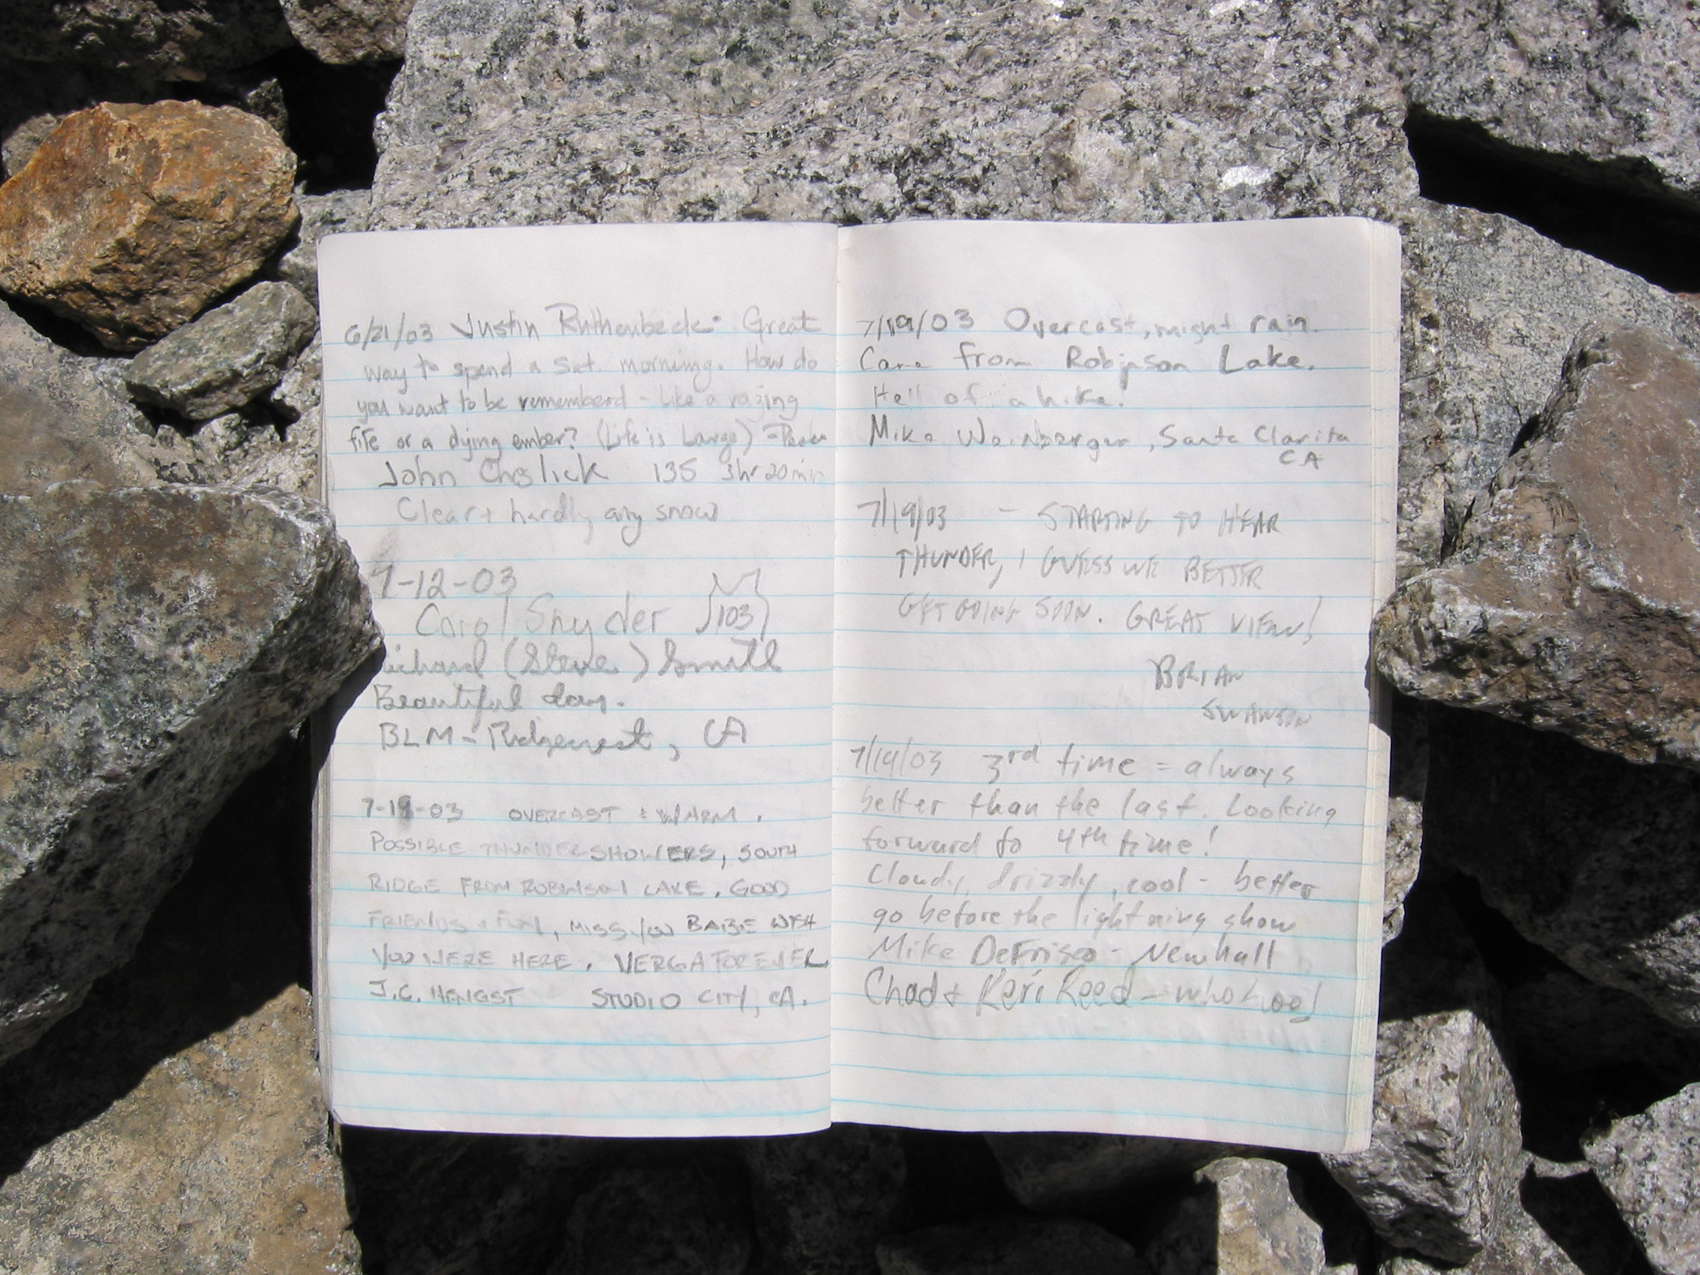 6/21/03 Justin Ruthenbeck - Great
way to spend a Sat. morning. How do
you want to be rememberd - like a raging
fire or a dying ember? (Life is Large)
John 135 3hr 20min
Clear + hardly any snow
7-12-03
Carol Snyder 103
Richard (Steve) Smith
Beautiful day.
BLM - Ridgecrest, CA
7-19-03 OVERCAST & WARM.
POSSIBLE THUNDERSHOWERS, SOUTH
RIDGE FROM ROBINSON LAKE. GOOD
FRIENDS & FUN, MISS YOU BABE WISH
YOU WERE HERE.
J.C. HENGST STUDIO CITY, CA.
7/19/03 Overcast, might rain.
Came from Robinson Lake.
Hell of a hike!
Mike Weinberger, Santa Clarita
CA
7/19/03 - STARTING TO HEAR
THUNDER, I GUESS WE BETTER
GET GOING SOON. GREAT VIEW!
BRIAN
SWANSON
7/19/03 3rd time = always
better than the last. Looking
forward to 4th time!
Cloudy, drizzly, cool - better
go before the lightning show
Mike DeFrisco - Newhall
Chad & Keri Reed - whohoo!